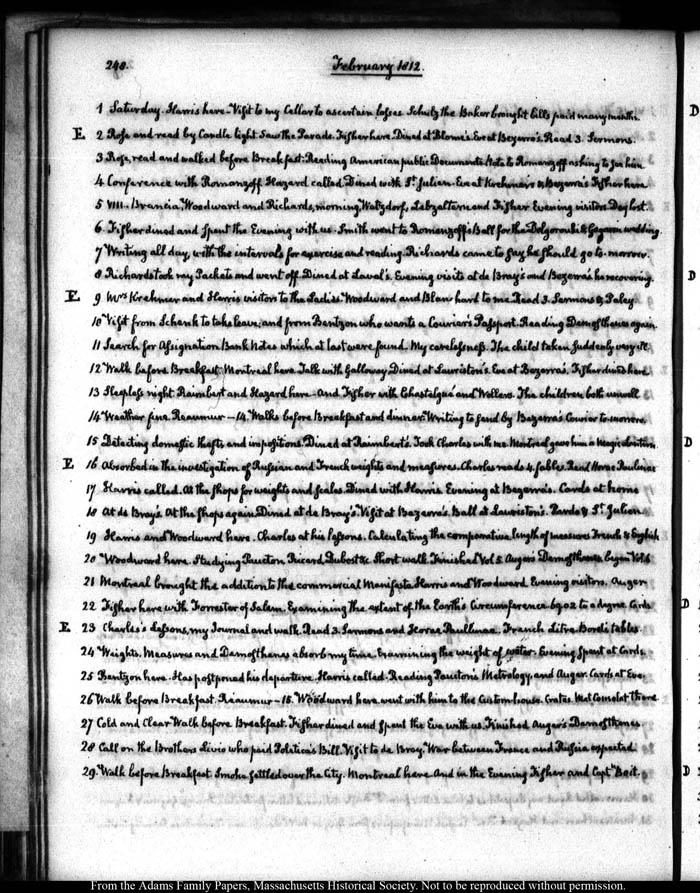 248. February 1812.
1 Saturday. Harris here. Visit to my Cellar to ascertain losses Schulz the Baker brought bills paid many months.
E. 2 Rose and read by Candle light. Saw the Parade. Fisher here. Dined at Blome's. Eve at Bezerra's. Read 3. Sermons.
3 Rose, read and walked before Breakfast. Reading American public Documents. Note to Romanzoff asking to see him
4 Conference with Romanzoff. Hazard called. Dined with St. Julien. Eve at Krehmer's & Bezerra's. Fisher here
5 VIII. Brancia, Woodward and Richards, morning, Watzdorf, Lebzeltern and Fisher Evening visitors. Day lost.
6. Fisher dined and Spent the Evening with us. Smith went to Romanzoff's Ball for the Dolgorouki & Gagarin wedding.
7 Writing all day, with the intervals for exercise and reading. Richards came to say he should go to-morrow.
8 Richards took my Packets and went off. Dined at Laval's. Evening visits at de Bray's and Bezerra's he recovering.
E. 9 Mrs. Krehmer and Harris visitors to the Ladies. Woodward and Blan hard to me. Read 3. Sermons & Paley
10 Visit from Schenk to take leave; and from Bentzon who wants a Courier's Passport. Reading Demosthenes again.
11 Search for Assignation Bank Notes which at last were found. My carelessness. The child taken suddenly very ill
12 Walk before Breakfast. Montreal here. Talk with Galloway. Dined at Lauriston's. Eve at Bezerra's. Fisher dined here
13 Sleepless night. Raimbert and Hazard here. And Fisher with and Wellers. The children both unwell
14 Weather fine. Reaumur – 14. Walks before Breakfast and dinner. Writing to send by Bezerra's Courier to-morrow.
15 Detecting domestic thefts and impositions. Dined at Raimbert's. Took Charles with me. Montreal gave him a Magic lantern.
E. 16 Absorbed in the investigation of Russian and French weights and measures. Charles reads 4. fables. Read Horae Paulinae
17 Harris called. At the shops for weights and scales. Dined with Harris. Evening at Bezerra's. Cards at home
18 At de Bray's. At the shops again. Dined at de Bray's. Visit at Bezerra's. Ball at Lauriston's. Pardo & St. Julien
19 Harris and Woodward here. Charles at his lessons. Calculating the comparative length of measures French & English
20 Woodward here. Studying Paucton, Ricard, Dubost &c. Short walk. Finished Vol 5. Auger's Demosthenes, begun Vol 6
21 Montreal brought the addition to the commercial Manifesto. Harris and Woodward Evening visitors. Auger
22 Fisher here with Forrester of Salem. Examining the extent of the Earth's Circumference 69.02 to a degree. Cards
E 23 Charles's Lessons, my Journal and walk. Read 3. Sermons and Horae Paullinae. French Litre. Borda's tables.
24 Weights, Measures and Demosthenes absorb my time. Examining the weight of water. Evening Spent at Cards
25 Bentzon here. Has postponed his departure. Harris called. Reading Paucton's Metrology, and Auger. Cards at Eve.
26 Walk before Breakfast. Reaumur – 15. Woodward here went with him to the Customhouse. Crates. Met Comolet there
27 Cold and Clear. Walk before Breakfast. Fisher dined and Spent the Eve with us. Finished Auger's Demosthenes
28 Call on the Brothers Livio who paid Politica's Bill. Visit to de Bray. War between France and Russia expected
29. Walk before Breakfast. Smoke settled over the City. Montreal here. And in the Evening Fisher and Captn. Bait.
From the Adams Family Papers, Massachusetts Historical Society. Not to be reproduced without permission.